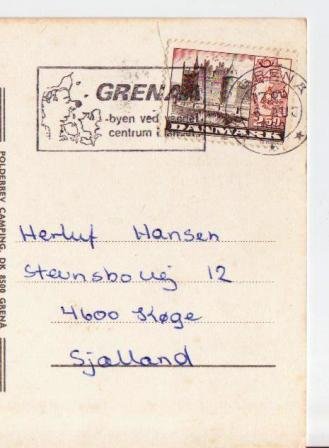 GRENAA
-byen ved vandet
centrum i
DANMARK
GRENÅ
POLDERREV CAMPING, DK 8500 GRENÅ
Herluf Hansen
Stevnsbovej 12
4600 Køge
Sjælland